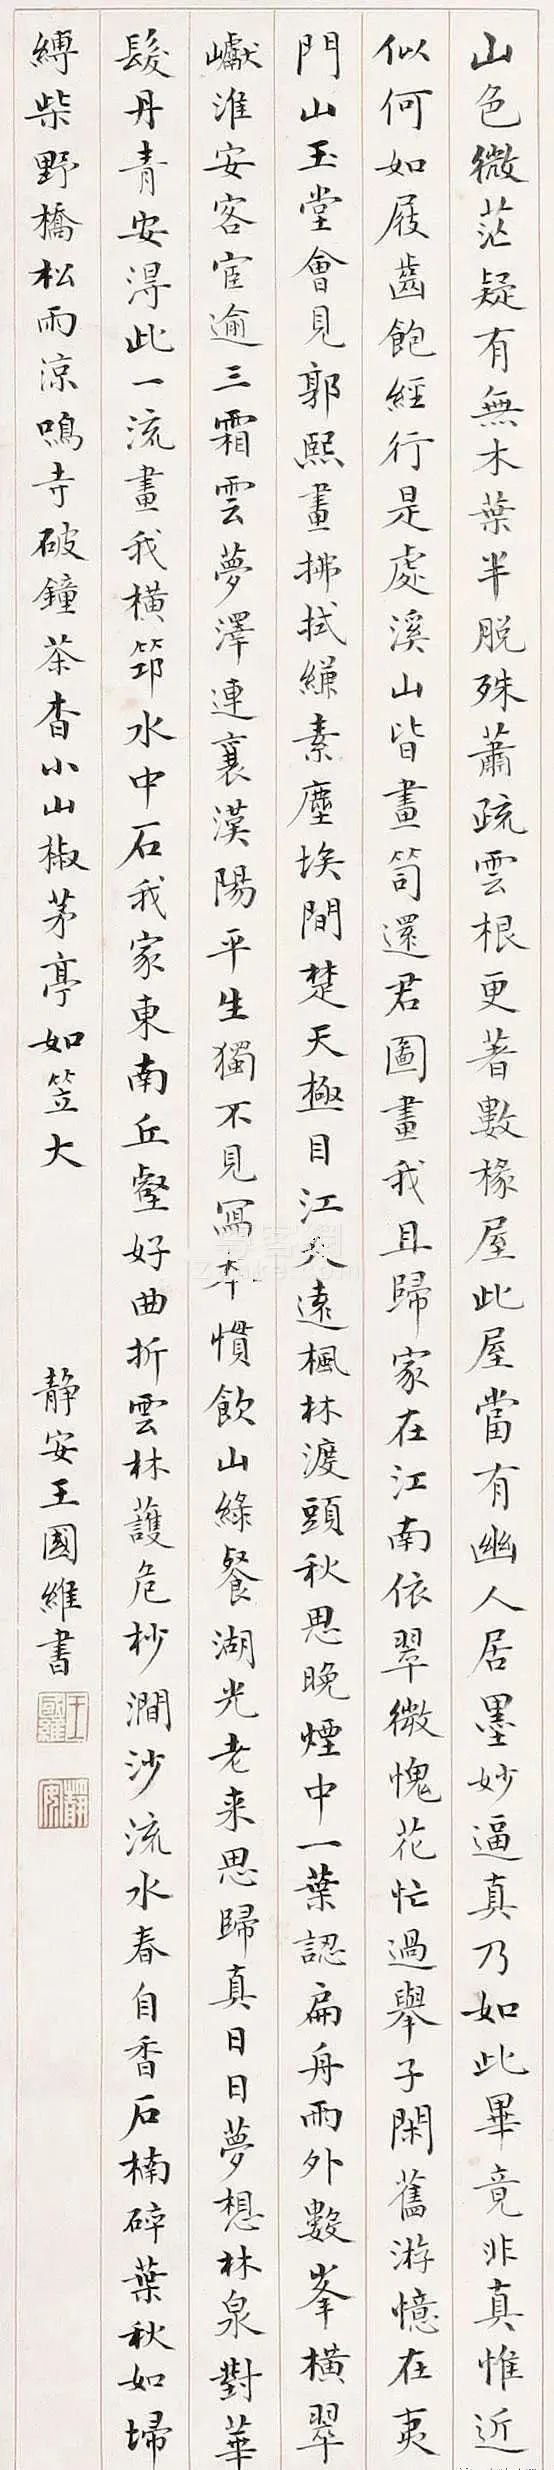 山色微茫疑有無木葉半脫殊蕭疏雲根更著數椽屋此屋當有幽人居墨妙逼真乃如此畢竟非真惟近
似何如屐齒飽經行是處溪山皆畫笥還君圖畫我且歸家在江南依翠微愧花忙過舉子閑舊游憶在夷
門山玉堂會見郭熙畫拂拭縑素塵埃間楚天極目江天遠楓林渡頭秋思晚煙中一葉認扁舟雨外數峯橫翠
巘淮安客宦逾三霜雲夢澤連襄漢陽平生獨不見寫本慣飲山綠餐湖光老来思歸真日日夢想林泉對華
髮丹青安得此一流畫我橫筇水中石我家東南丘壑好曲折雲林護危杪澗沙流水春自香石楠碎葉秋如埽
縛柴野橋松雨涼鳴寺破鐘茶杳小山椒茅亭如笠大
靜安王國維書
王國維
靜安